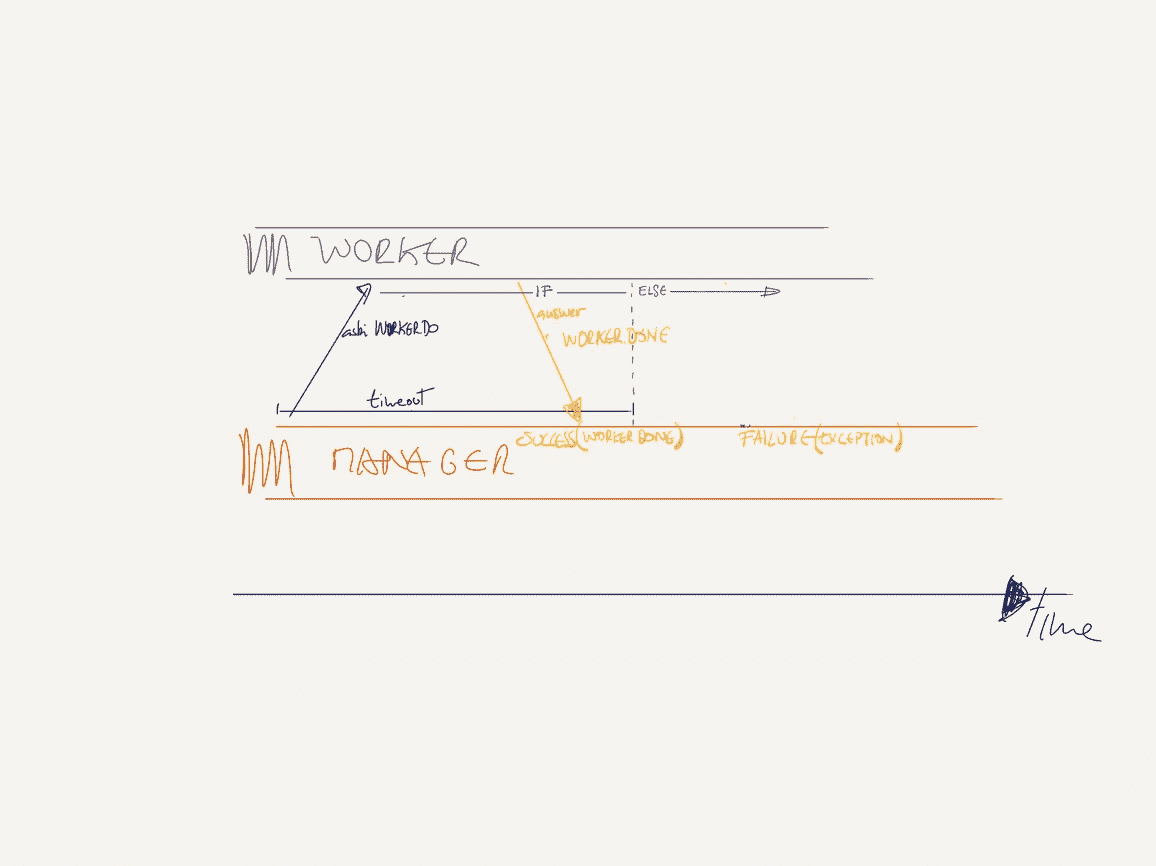 WORKER
IF
ELSE
answer
ask: WORKER DO
WORKER.DONE
timeout
SUCCESS(WORKER DONE)
FAILURE(EXCEPTION)
MANAGER
time